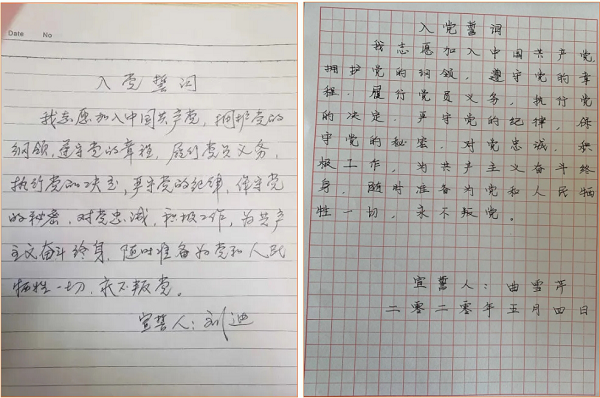 Date No
入党誓词
我志愿加入中国共产党，拥护党的
纲领，遵守党的章程，履行党员义务，
执行党的决定，严守党的纪律，保守党
的秘密，对党忠诚，积极工作，为共产
主义奋斗终身，随时准备为党和人民
牺牲一切，永不叛党。
宣誓人：刘迪
入党誓词
我志愿加入中国共产党
拥护党的纲领，遵守党的章
程，履行党员义务，执行党
的决定，严守党的纪律，保
守党的秘密，对党忠诚，积
极工作，为共产主义奋斗终
身，随时准备为党和人民牺
牲一切，永不叛党。
宣誓人：曲雪芹
二零二零年五月四日